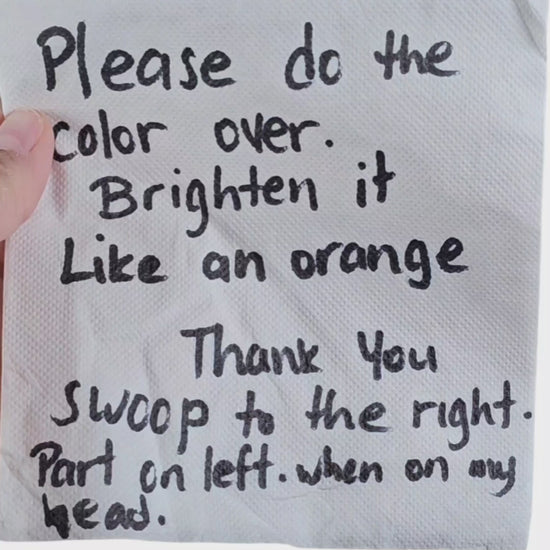 Please do the
color over.
Brighten it
Like an orange
Thank You
Swoop to the right.
Part on left. when on my
head.